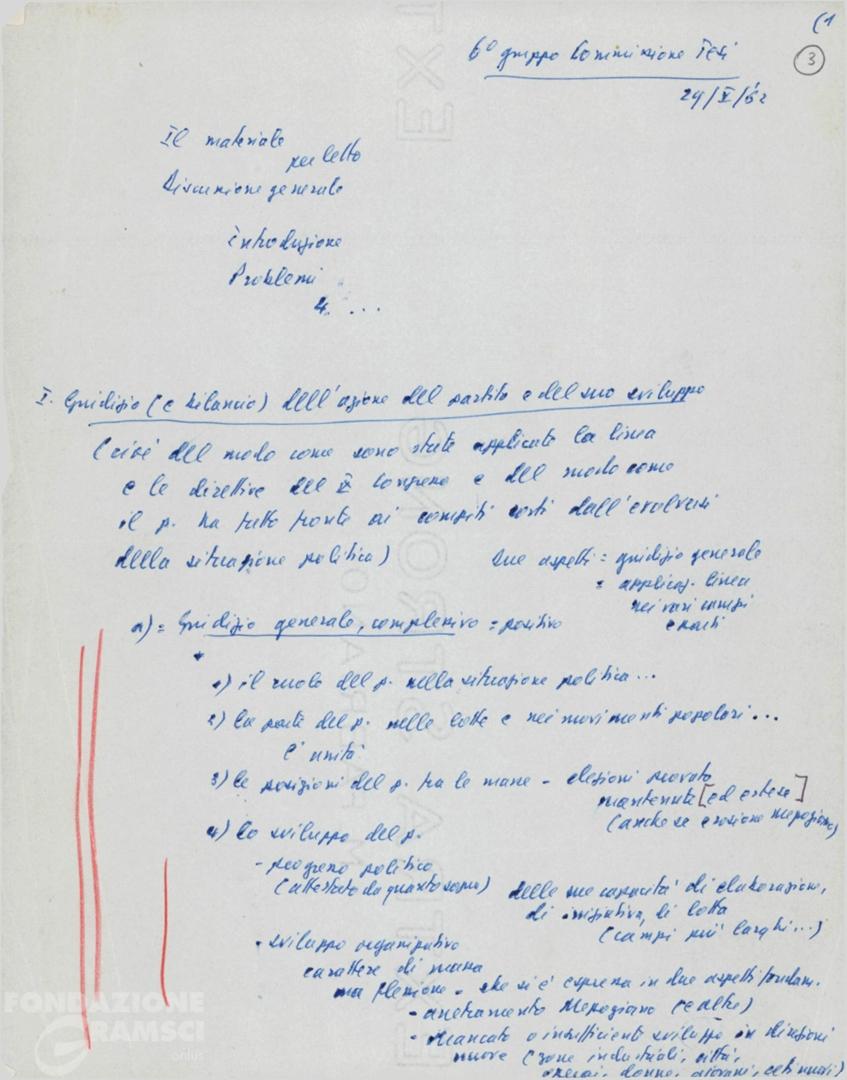 (1
3
6º gruppo Commissione Tesi
29/X/62
Il materiale
per letto
Discussione generale
introduzione
Problemi
4. ...
I. Giudizio (e bilancio) dell'azione del partito e del suo sviluppo
(cioè del modo come sono state applicate la linea
e le direttive del X Congresso e del modo come
il p. ha fatto fronte ai compiti sorti dall'evolversi
della situazione politica)
due aspetti = giudizio generale
= applicaz. linea
nei vari campi
e parti
a) = Giudizio generale, complessivo = positivo
1) il ruolo del p. nella situazione politica...
2) la parte del p. nelle lotte e nei movimenti popolari...
L'unità
3) le posizioni del p. tra le masse - elezioni provato
mantenute [ed estese]
(anche se erosione Mezogiorno)
4) lo sviluppo del p.
- progresso politico
(attestato da quanto sopra)
delle sue capacità di elaborazione,
di iniziativa, di lotta
(campi più larghi...)
- sviluppo organizzativo
carattere di massa
ma flessione - che si è espressa in due aspetti fondam.
- arretramento Mezogiorno (e altre)
- Mancato o insufficiente sviluppo in direzioni
nuove (zone industriali, città,
operai, donne, giovani, ceti nuovi)
FONDAZIONE
GRAMSCI
onlus